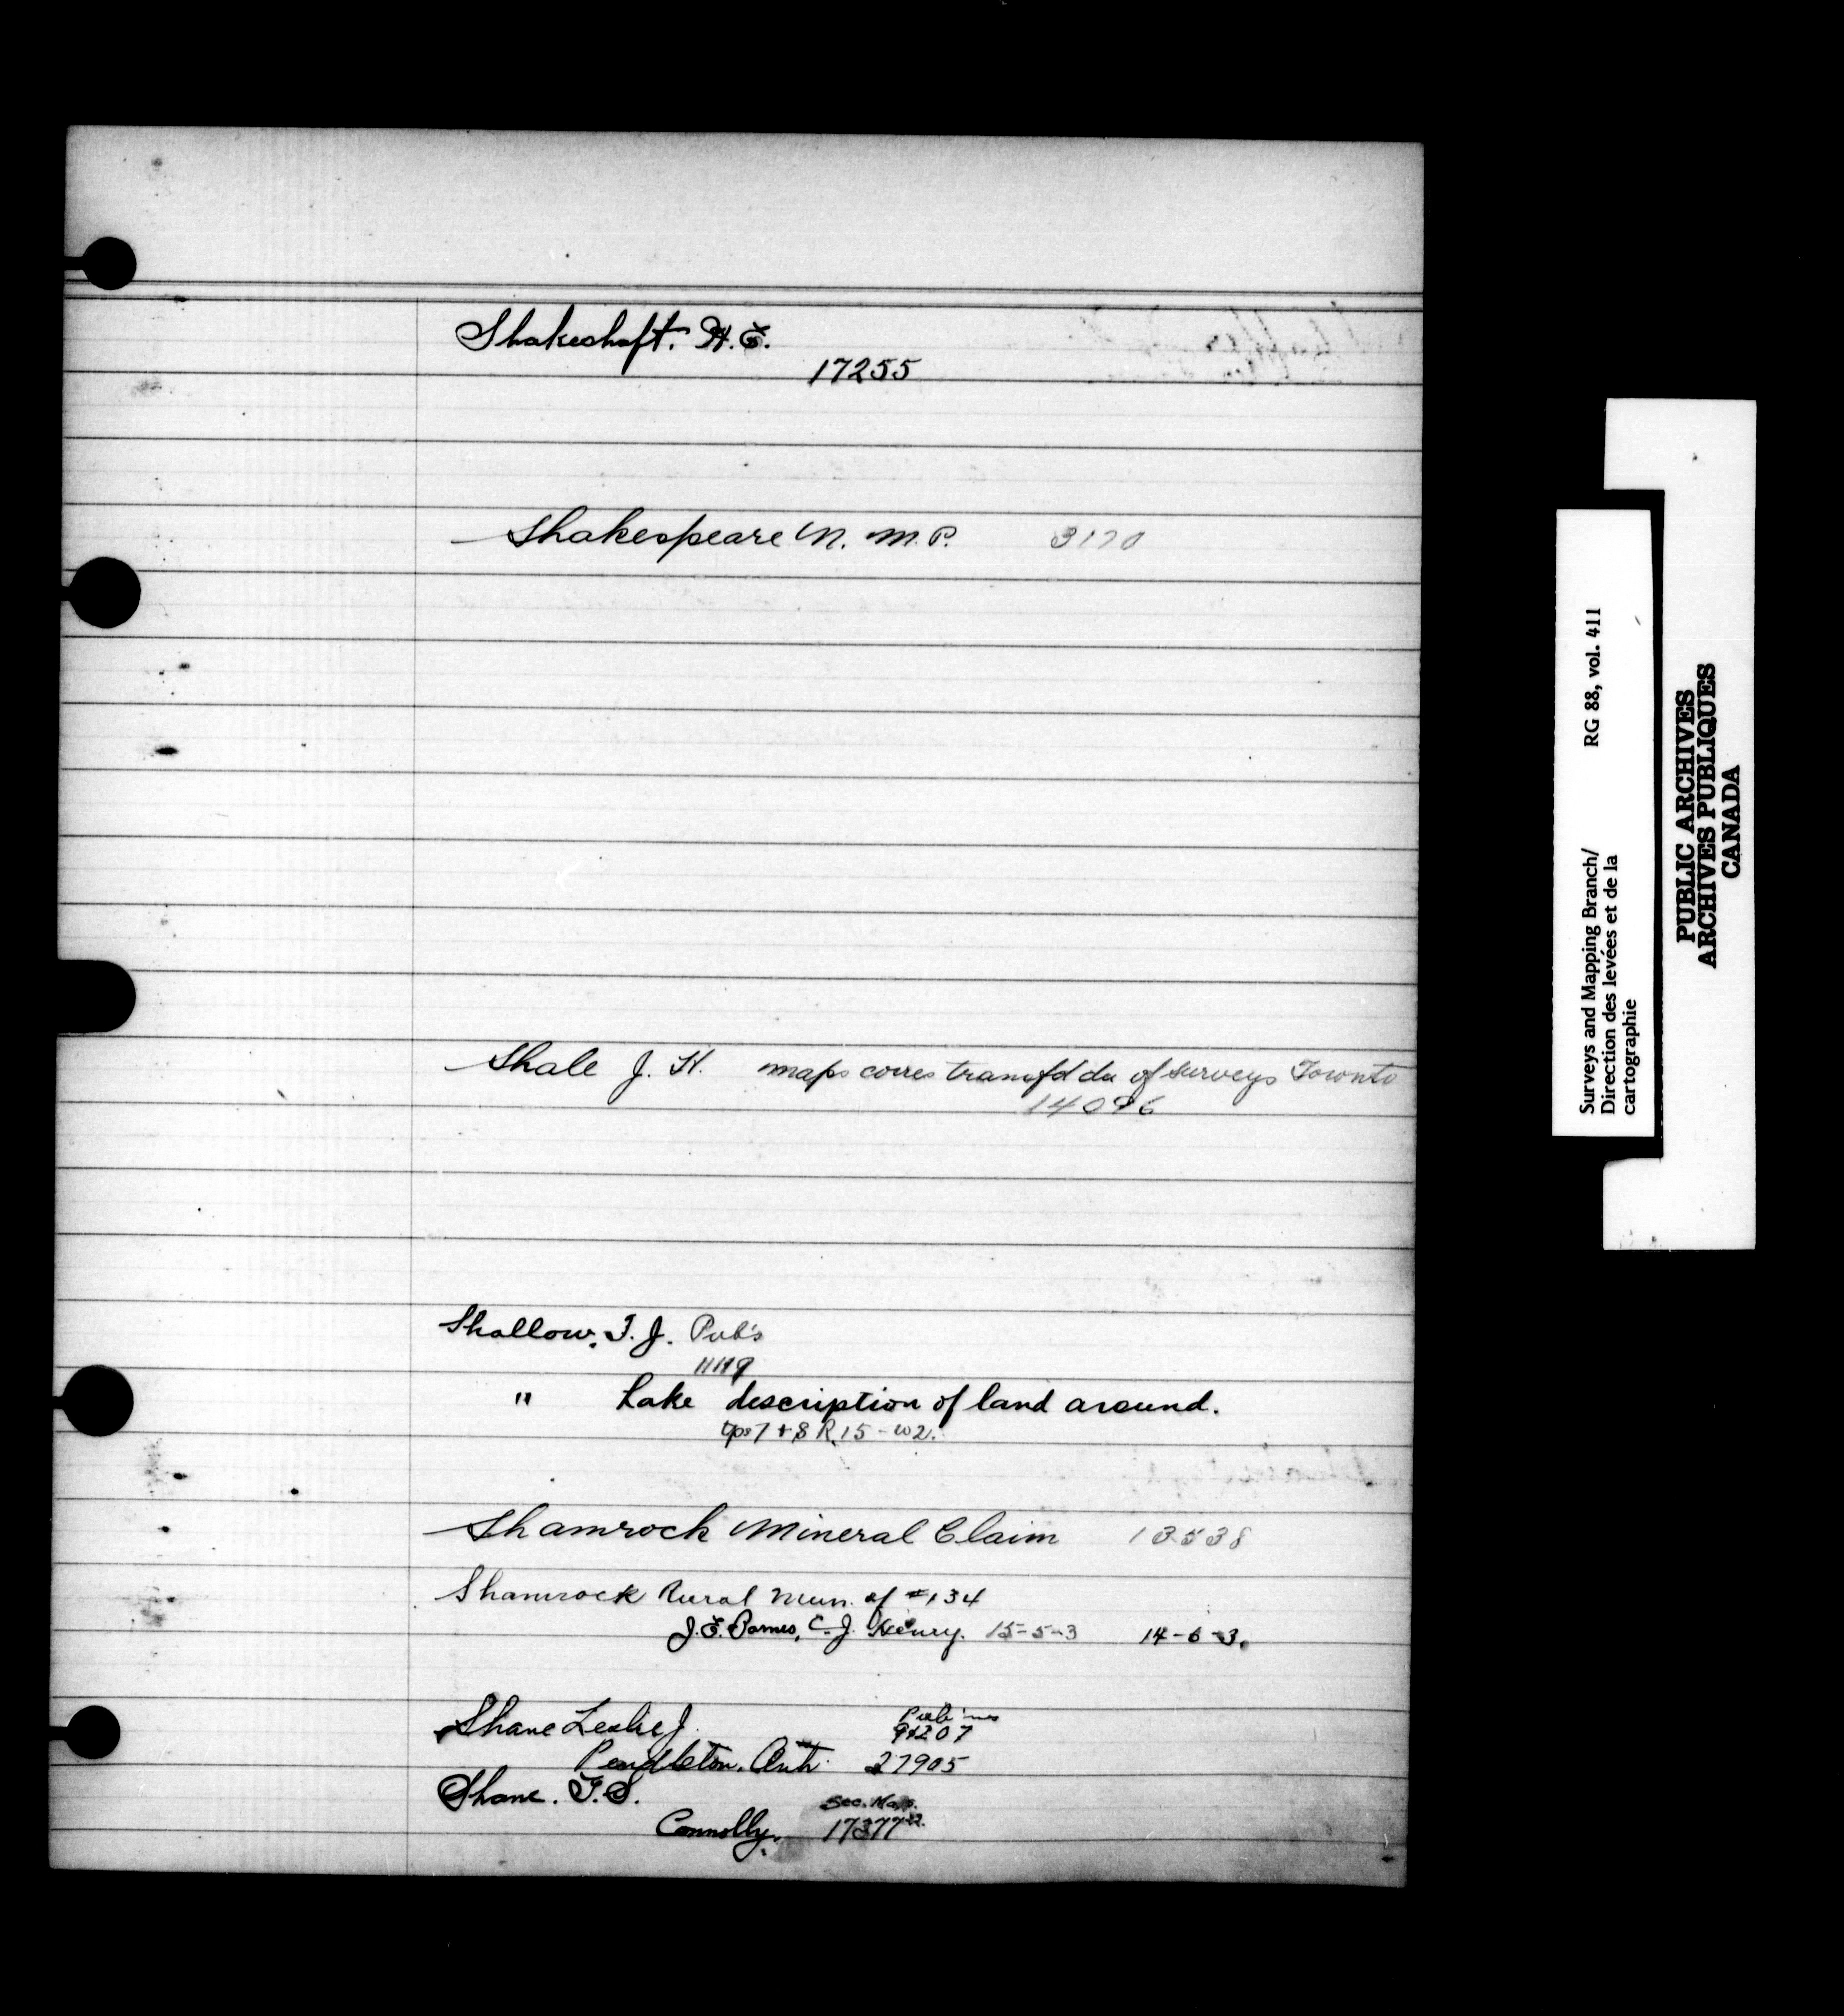 Shakeshaft. H.E.
17255
Shakespeare N. M.P. 3170
Shale J. H. maps corres transfd of surveys Toronto
14096
Shallow, T. J. Pub's
11119
" Lake description of land around.
tps 7 + 8 R. 15 - W2.
Shamrock Mineral Claim 13538
Shamrock Rural Mun. of #134
J.E. C. J. Henry. 15-5-3 14-6-3.
Shane Leslie J.
Pendleton. Ont. 27905
Shane. T.S. Sec. Map.
Connolly. 17377
Surveys and Mapping Branch/ RG 88, vol. 411
Direction des levées et de la
cartographie
PUBLIC ARCHIVES
ARCHIVES PUBLIQUES
CANADA